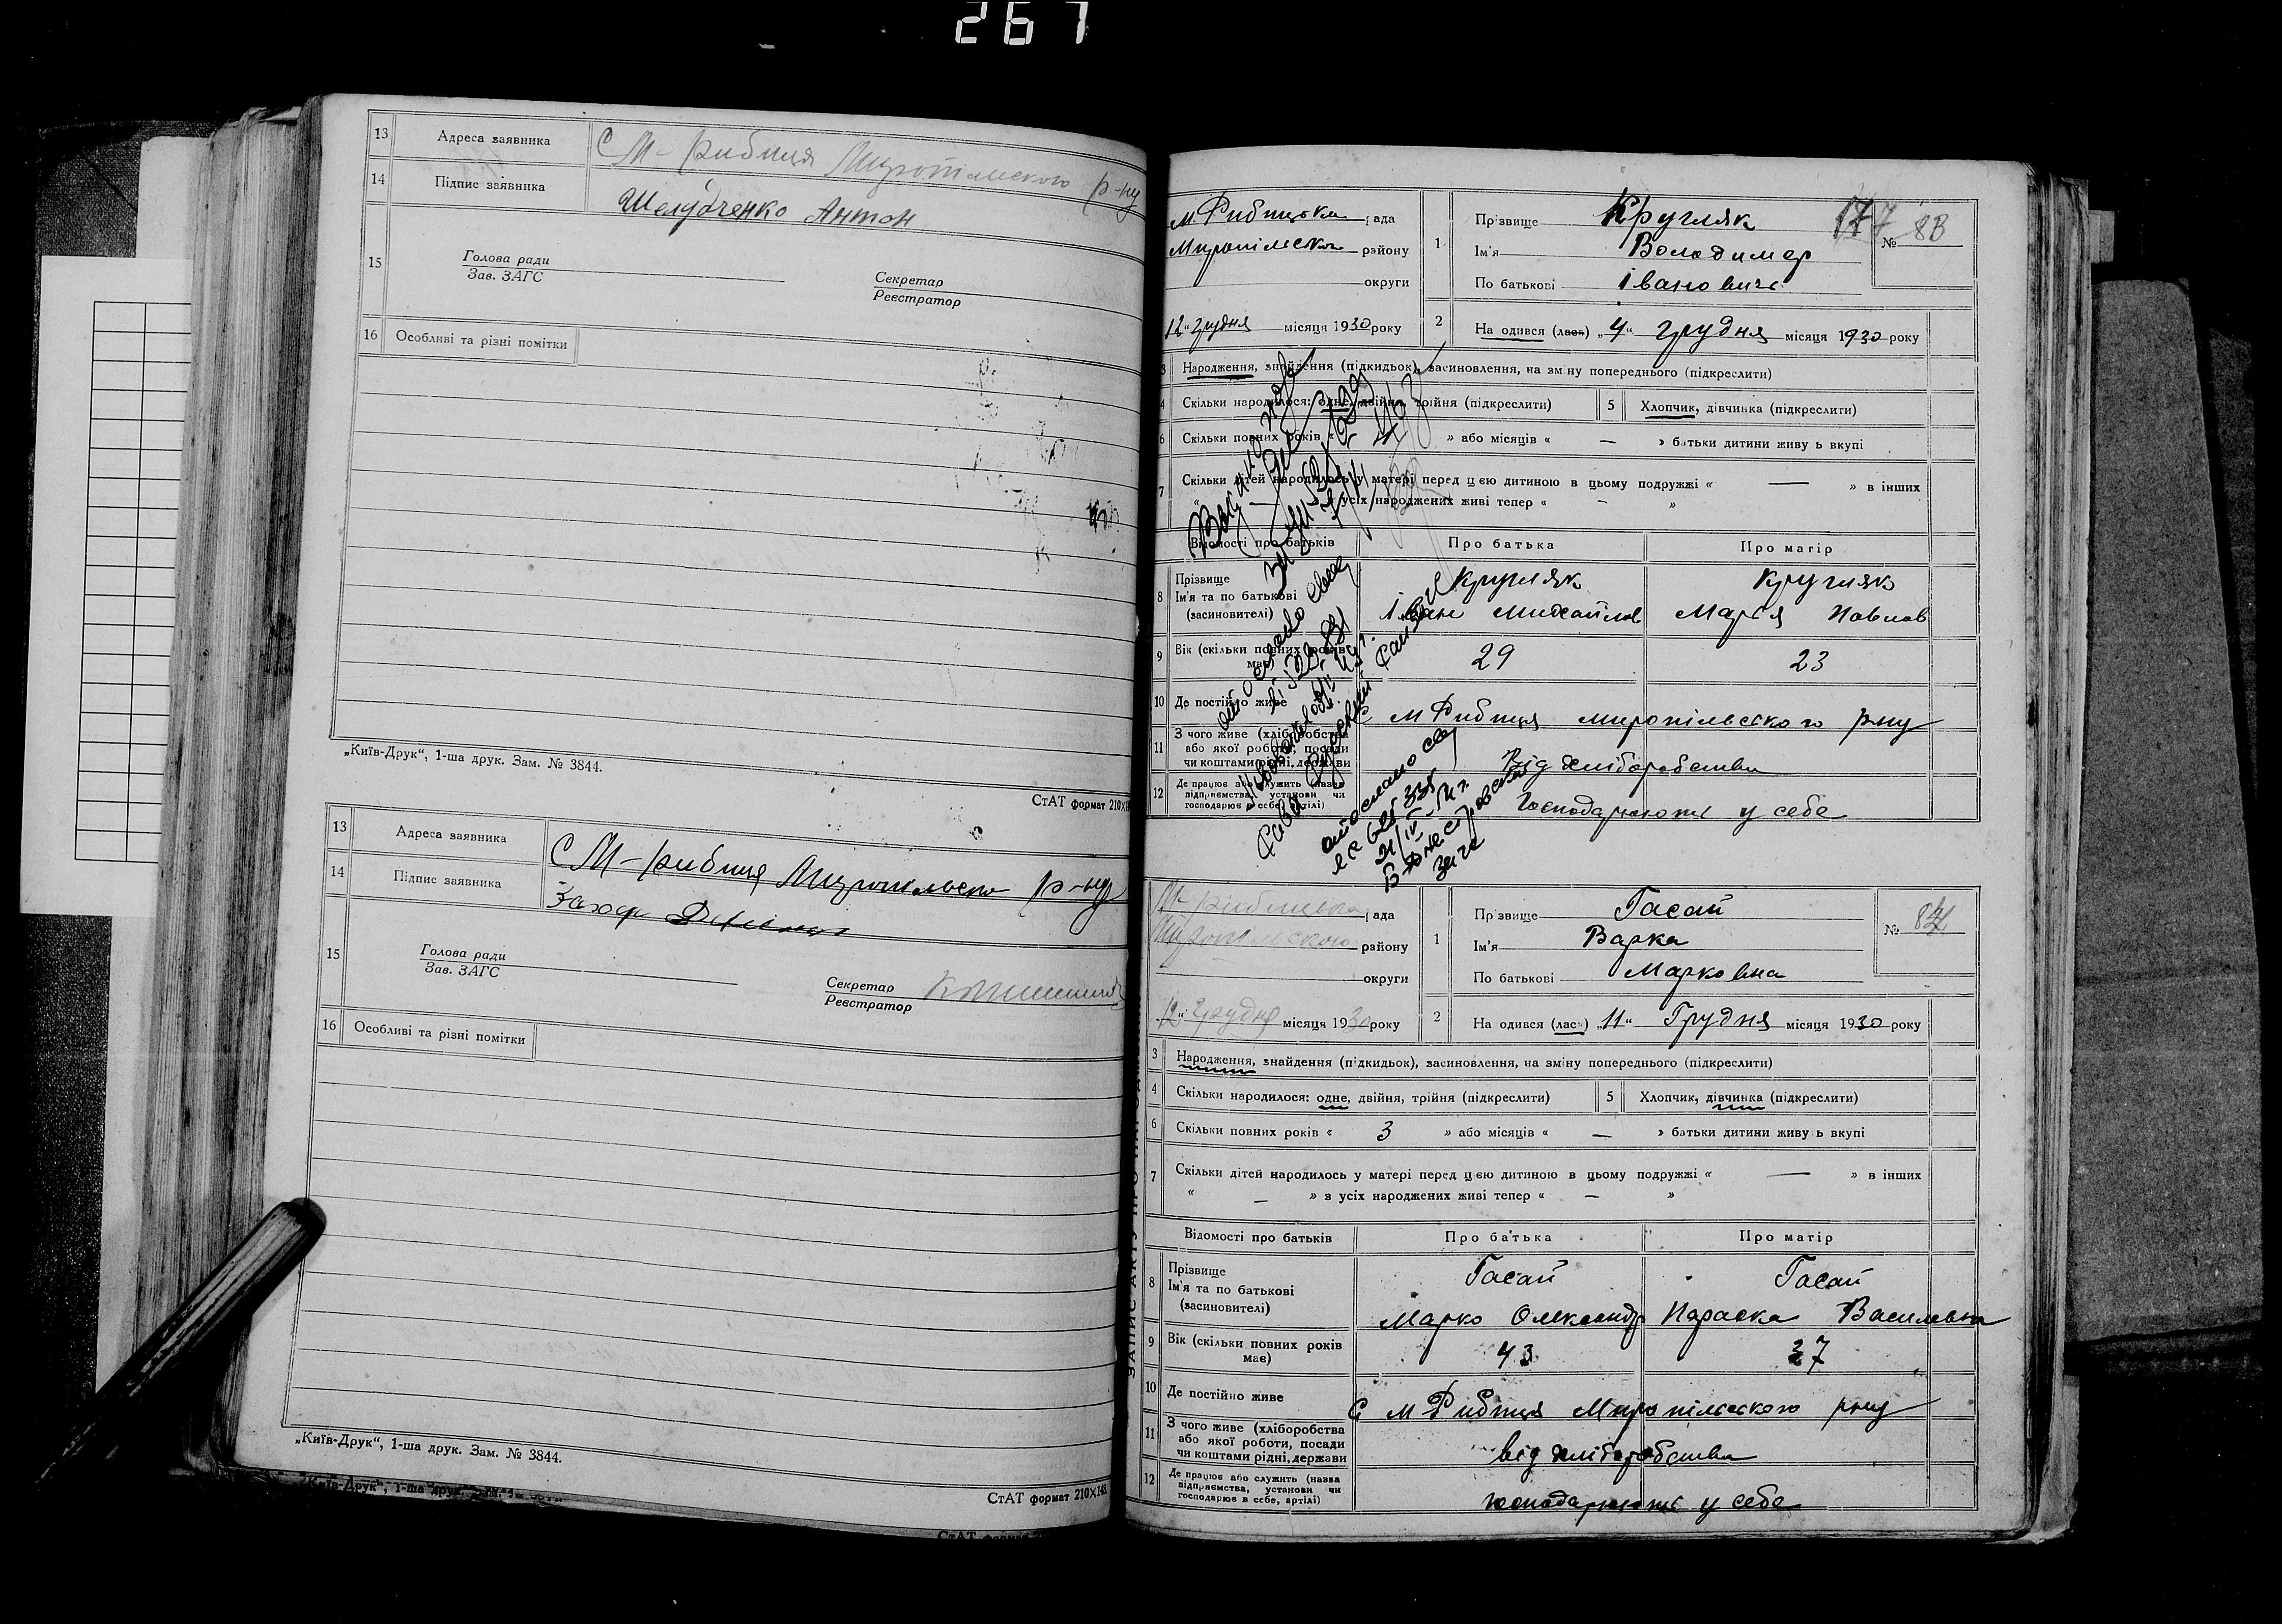 267
13 Адреса заявника С М-рибиця Миропільського р-ну
14 Підпис заявника Шелудченко Антон
15 Голова ради
Зав. ЗАГС
Секретар
Реєстратор
16 Особливі та різні помітки
„Київ-Друк“, 1-ша друк. Зам. № 3844.
СтАТ формат 210×148
13 Адреса заявника С М-рибиця Миропільсько р-ну
14 Підпис заявника
15 Голова ради
Зав. ЗАГС
Секретар
Реєстратор
16 Особливі та різні помітки
„Київ-Друк“, 1-ша друк. Зам. № 3844.
СтАТ формат 210×148
177
м Рибицька рада
Миропільсько району
округи
12 „ грудня місяця 1930 року
1 Прізвище Кругляк
Ім'я Володимер
По батькові Іванович
№ 83
2 На одився (лась) „4“ грудня місяця 1930 року
3 Народження, знайдення (підкидьок), засиновлення, на зміну попереднього (підкреслити)
4 Скільки народилося: одне, двійня, трійня (підкреслити)
5 Хлопчик, дівчинка (підкреслити)
6 Скільки повних років « » або місяців « — » батьки дитини живу ь вкупі
7 Скільки дітей народилось у матері перед цією дитиною в цьому подружжі « — » в інших
« » з усіх народжених живі тепер « — »
Відомості про батьків Про батька Про матір
8 Прізвище Кругляк Кругляк
Ім'я та по батькові Іван Михайлов Марія Павлов
(засиновителі)
9 Вік (скільки повних років має) 29 23
10 Де постійно живе С м Рибиця миропільського рну
11 З чого живе (хліборобства
або якої роботи, посади
чи коштами рідні, держави Від хліборобства
12 Де працює або служить (назва
підприємства, установи чи
господарює в себе, артілі) Господарюють у себе
М-рибицька рада
Миропільського району
округи
12 „ Грудня місяця 1930 року
1 Прізвище Гасай
Ім'я Варка
По батькові Марковна
№ 84
2 На одився (лась) „11“ Грудня місяця 1930 року
3 Народження, знайдення (підкидьок), засиновлення, на зміну попереднього (підкреслити)
4 Скільки народилося: одне, двійня, трійня (підкреслити)
5 Хлопчик, дівчинка (підкреслити)
6 Скільки повних років « 3 » або місяців « — » батьки дитини живу ь вкупі
7 Скільки дітей народилось у матері перед цією дитиною в цьому подружжі « — » в інших
« — » з усіх народжених живі тепер « — »
Відомості про батьків Про батька Про матір
8 Прізвище Гасай Гасай
Ім'я та по батькові
(засиновителі) Марко Олександр Параска Василевна
9 Вік (скільки повних років має) 43 37
10 Де постійно живе С м Рибиця Миропільського рну
11 З чого живе (хліборобства
або якої роботи, посади
чи коштами рідні, держави від хліборобства
12 Де працює або служить (назва
підприємства, установи чи
господарює в себе, артілі) господарюють у себе